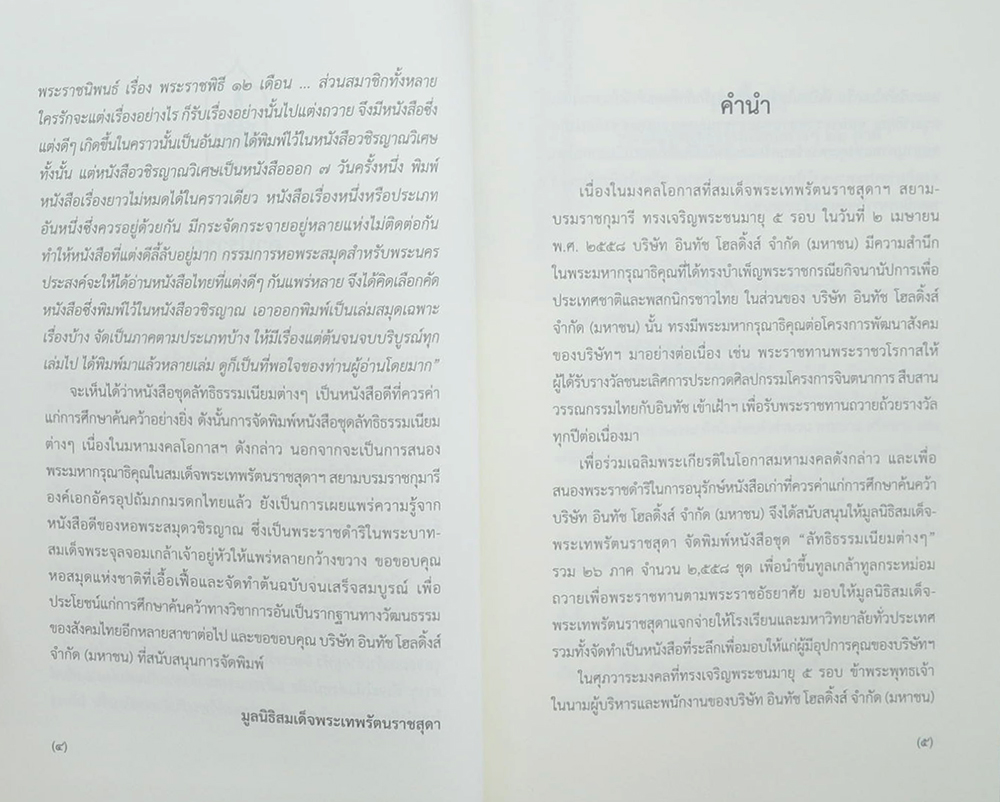 พระราชนิพนธ์ เรื่อง พระราชพิธี ๑๒ เดือน ... ส่วนสมาชิกทั้งหลาย
ใครรักจะแต่งเรื่องอย่างไร ก็รับเรื่องอย่างนั้นไปแต่งถวาย จึงมีหนังสือซึ่ง
แต่งดีๆ เกิดขึ้นในคราวนั้นเป็นอันมาก ได้พิมพ์ไว้ในหนังสือวชิรญาณวิเศษ
ทั้งนั้น แต่หนังสือวชิรญาณวิเศษเป็นหนังสือออก ๗ วันครั้งหนึ่ง พิมพ์
หนังสือเรื่องยาวไม่หมดได้ในคราวเดียว หนังสือเรื่องหนึ่งหรือประเภท
อันหนึ่งซึ่งควรอยู่ด้วยกัน มีกระจัดกระจายอยู่หลายแห่งไม่ติดต่อกัน
ทำให้หนังสือที่แต่งดีลี้ลับอยู่มาก กรรมการหอพระสมุดสำหรับพระนคร
ประสงค์จะให้ได้อ่านหนังสือไทยที่แต่งดีๆ กันแพร่หลาย จึงได้คิดเลือกคัด
หนังสือซึ่งพิมพ์ไว้ในหนังสือวชิรญาณ เอาออกพิมพ์เป็นเล่มสมุดเฉพาะ
เรื่องบ้าง จัดเป็นภาคตามประเภทบ้าง ให้มีเรื่องแต่ต้นจนจบบริบูรณ์ทุก
เล่มไป ได้พิมพ์มาแล้วหลายเล่ม ดูก็เป็นที่พอใจของท่านผู้อ่านโดยมาก”
จะเห็นได้ว่าหนังสือชุดลัทธิธรรมเนียมต่างๆ เป็นหนังสือดีที่ควรค่า
แก่การศึกษาค้นคว้าอย่างยิ่ง ดังนั้นการจัดพิมพ์หนังสือชุดลัทธิธรรมเนียม
ต่างๆ เนื่องในมหามงคลโอกาสฯ ดังกล่าว นอกจากจะเป็นการสนอง
พระมหากรุณาธิคุณในสมเด็จพระเทพรัตนราชสุดาฯ สยามบรมราชกุมารี
องค์เอกอัครอุปถัมภกมรดกไทยแล้ว ยังเป็นการเผยแพร่ความรู้จาก
หนังสือดีของหอพระสมุดวชิรญาณ ซึ่งเป็นพระราชดำริในพระบาท-
สมเด็จพระจุลจอมเกล้าเจ้าอยู่หัวให้แพร่หลายกว้างขวาง ขอขอบคุณ
หอสมุดแห่งชาติที่เอื้อเฟื้อและจัดทำต้นฉบับจนเสร็จสมบูรณ์ เพื่อ
ประโยชน์แก่การศึกษาค้นคว้าทางวิชาการอันเป็นรากฐานทางวัฒนธรรม
ของสังคมไทยอีกหลายสาขาต่อไป และขอขอบคุณ บริษัท อินทัช โฮลดิ้งส์
จำกัด (มหาชน) ที่สนับสนุนการจัดพิมพ์
มูลนิธิสมเด็จพระเทพรัตนราชสุดา
(๔)
คำนำ
เนื่องในมงคลโอกาสที่สมเด็จพระเทพรัตนราชสุดาฯ สยาม-
บรมราชกุมารี ทรงเจริญพระชนมายุ ๕ รอบ ในวันที่ ๒ เมษายน
พ.ศ. ๒๕๕๘ บริษัท อินทัช โฮลดิ้งส์ จำกัด (มหาชน) มีความสำนึก
ในพระมหากรุณาธิคุณที่ได้ทรงบำเพ็ญพระราชกรณียกิจนานัปการเพื่อ
ประเทศชาติและพสกนิกรชาวไทย ในส่วนของ บริษัท อินทัช โฮลดิ้งส์
จำกัด (มหาชน) นั้น ทรงมีพระมหากรุณาธิคุณต่อโครงการพัฒนาสังคม
ของบริษัทฯ มาอย่างต่อเนื่อง เช่น พระราชทานพระราชวโรกาสให้
ผู้ได้รับรางวัลชนะเลิศการประกวดศิลปกรรมโครงการจินตนาการ สืบสาน
วรรณกรรมไทยกับอินทัช เข้าเฝ้าฯ เพื่อรับพระราชทานถวายถ้วยรางวัล
ทุกปีต่อเนื่องมา
เพื่อร่วมเฉลิมพระเกียรติในโอกาสมหามงคลดังกล่าว และเพื่อ
สนองพระราชดำริในการอนุรักษ์หนังสือเก่าที่ควรค่าแก่การศึกษาค้นคว้า
บริษัท อินทัช โฮลดิ้งส์ จำกัด (มหาชน) จึงได้สนับสนุนให้มูลนิธิสมเด็จ-
พระเทพรัตนราชสุดา จัดพิมพ์หนังสือชุด “ลัทธิธรรมเนียมต่างๆ”
รวม ๒๖ ภาค จำนวน ๒,๕๕๘ ชุด เพื่อนำขึ้นทูลเกล้าทูลกระหม่อม
ถวายเพื่อพระราชทานตามพระราชอัธยาศัย มอบให้มูลนิธิสมเด็จ-
พระเทพรัตนราชสุดาแจกจ่ายให้โรงเรียนและมหาวิทยาลัยทั่วประเทศ
รวมทั้งจัดทำเป็นหนังสือที่ระลึกเพื่อมอบให้แก่ผู้มีอุปการคุณของบริษัทฯ
ในศุภวาระมงคลที่ทรงเจริญพระชนมายุ ๕ รอบ ข้าพระพุทธเจ้า
ในนามผู้บริหารและพนักงานของบริษัท อินทัช โฮลดิ้งส์ จำกัด (มหาชน)
(๕)